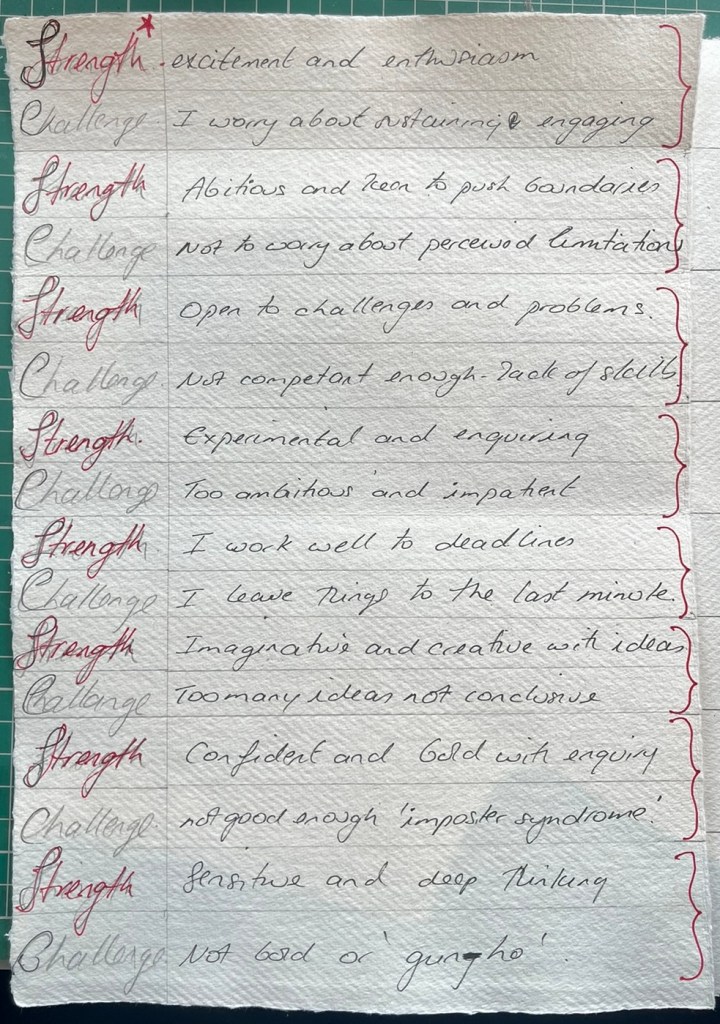 Strength* - excitement and enthusiasm
Challenge. I worry about sustaining & engaging
Strength Abitious and keen to push boundaries
Challenge Not to worry about perceived limitations
Strength Open to challenges and problems.
Challenge. Not competant enough - lack of skills
Strength. Experimental and enquiring
Challenge Too ambitious and impatient
Strength I work well to deadlines
Challenge I leave things to the last minute.
Strength Imaginative and creative with ideas
Challenge Too many ideas not conclusive
Strength Confident and bold with enquiry
Challenge. not good enough 'imposter syndrome'.
Strength Sensitive and deep thinking
Challenge Not bold or 'gung-ho'.